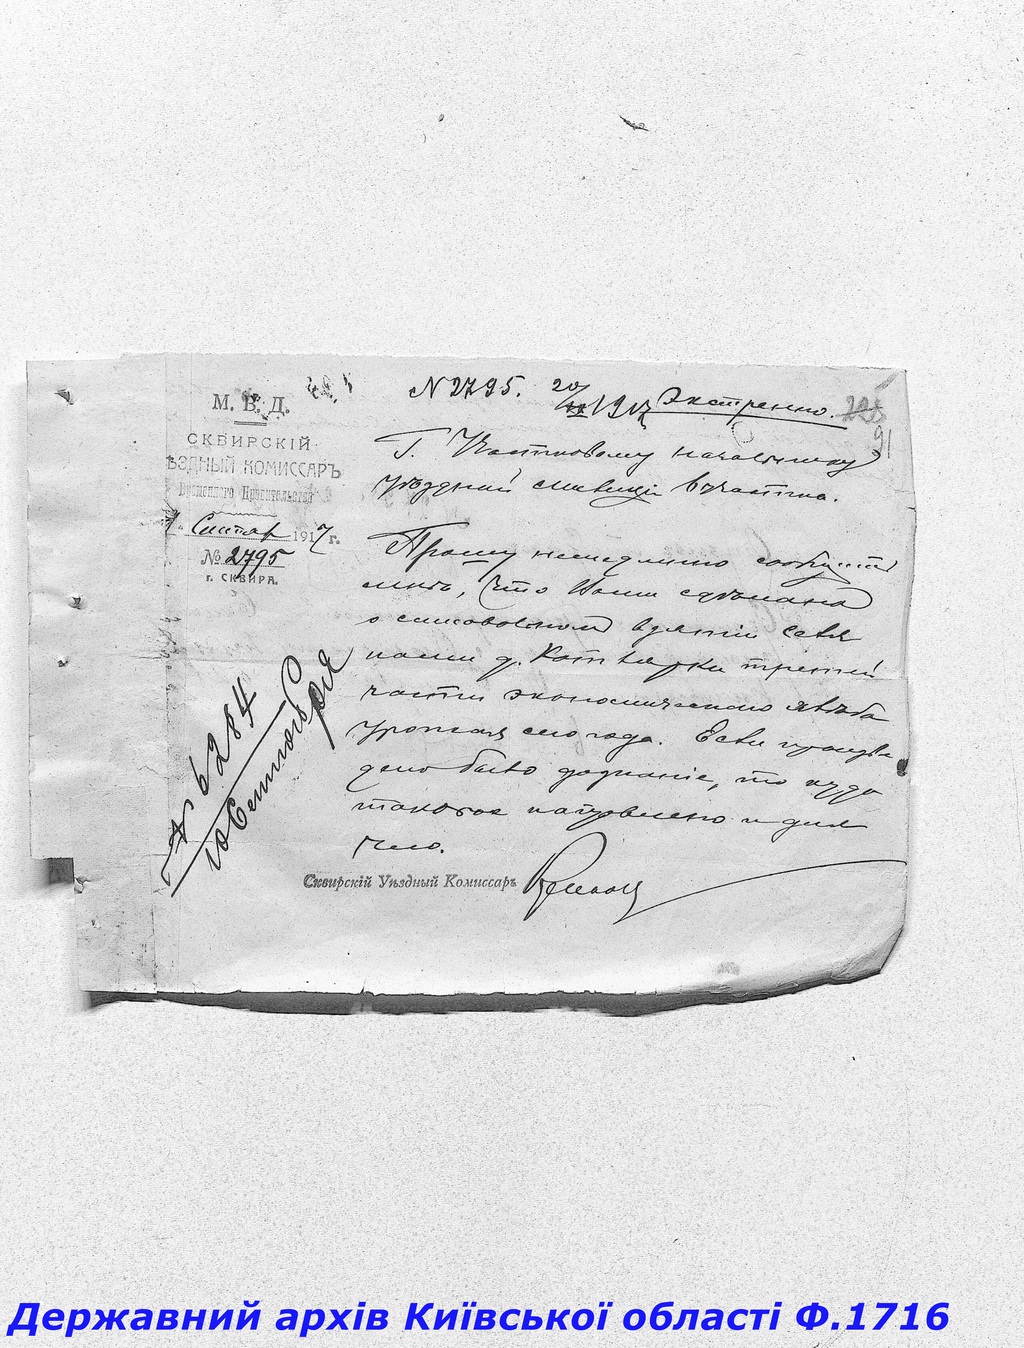 М. В. Д.
СКВИРСКІЙ
ѢЗДНЫЙ КОМИССАРЪ
Временнаго Правительства
Сентяб 1917 г.
№ 2795
г. СКВИРА.
N 2795. 20/IX 1917 Экстренно.
225
91
Г. Участковому начальнику
уѣздной милиціи участка.
Прошу немедленно сообщить
мнѣ, что Вами сдѣлано
о самовольном взятіи
д. третьей
части экономическаго хлѣба
урожая сего года. Если
дено было дознаніе, то куда
таковое направлено и для
чего.
Сквирскій Уѣздный Комиссаръ
№ 6284
10 Сентября
Державний архів Київської області Ф.1716